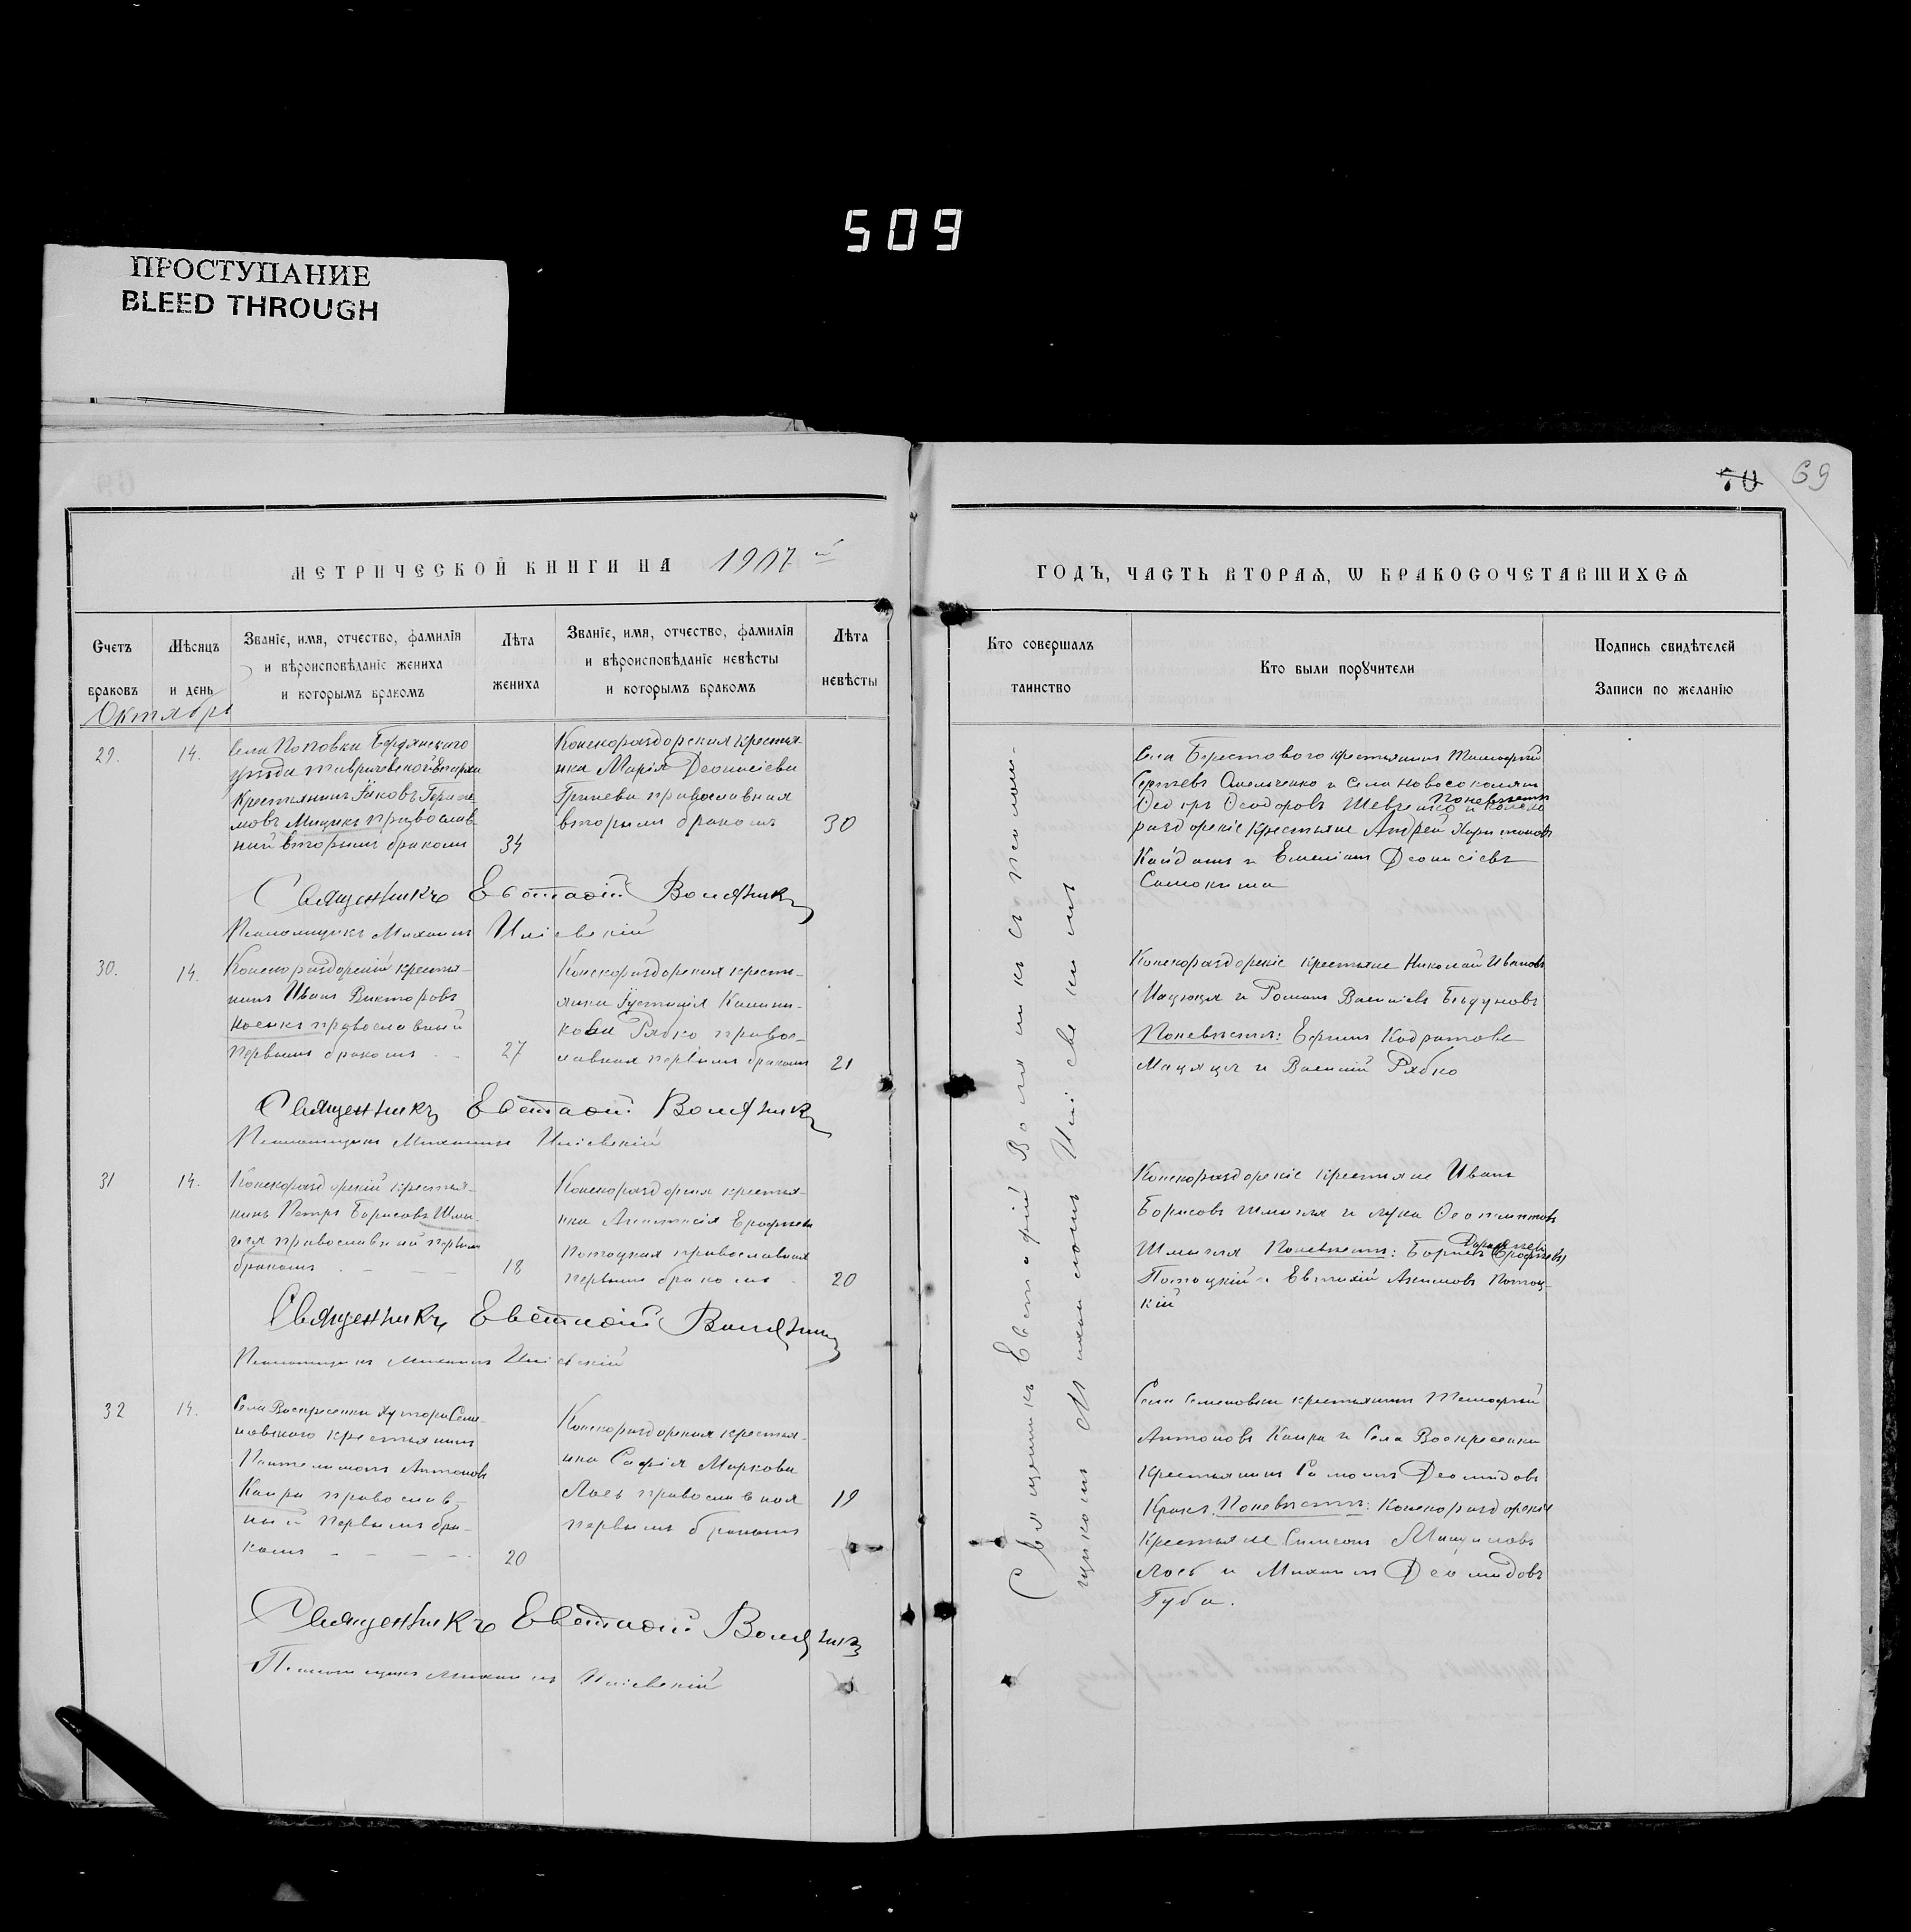 509
ПРОСТУПАНИЕ
BLEED THROUGH
70 69
МЕТРИЧЕСКОЙ КНИГИ НА 1907 й
ГОДЪ, ЧАСТЬ ВТОРАѦ, Ѡ БРАКОСОЧЕТАВШИХСѦ
Счетъ браковъ
Мѣсяцъ и день
Званіе, имя, отчество, фамилія
и вѣроисповѣданіе жениха
и которымъ бракомъ
Лѣта
жениха
Званіе, имя, отчество, фамилія
и вѣроисповѣданіе невѣсты
и которымъ бракомъ
Лѣта
невѣсты
Кто совершалъ
таинство
Кто были порꙋчители
Подпись свидѣтелей
Записи по желанію
Октябрь
29.
14.
Села Поповки Бердянского
уѣзда Таврической Епархіи
Крестьянинъ Іаковъ Гераси-
мовъ Мицикъ православ-
ний вторымъ бракомъ
34
Конскораздорская крестья-
нка Марія Деонисіева
Гринева православная
вторымъ бракомъ
30
Села Берестового крестьянинъ Тимофей
Сергѣевъ Омельченко и Села Новосоколян
Ѳеодоръ Ѳеодоровъ Шевченко Поневѣстѣ и Конско
раздорскіе крестьяне Андрей Харитоновъ
Кайданъ и Емеліанъ Деонисіевъ
Самокиша
Священникъ Евстаѳій Воляникъ
Псаломщикъ Михаилъ Иліевскій
30.
14.
Конскораздорскій крестья-
нинъ Иванъ Викторовъ
Носенко православный
первымъ бракомъ
27
Конскораздорская кресть-
янка Іустинія Калини-
кова Рябко правос-
лавная первымъ бракомъ
21
Конскораздорскіе крестьяне Николай Ивановъ
Мацюця и Романъ Василіевъ Бъдуновъ
Поневѣстѣ: Ефимъ Кодратовъ
Мацяця и Василій Рябко
Священникъ Евстаѳій Воляникъ
Псаломщикъ Михаилъ Иліевскій
31
14.
Конскораздорскій крестья-
нинъ Петръ Борисовъ Шмы-
гля православный первымъ
бракомъ
18
Конскораздорская крестья-
нка Анастасія Ерофѣева
Потоцкая православная
первымъ бракомъ
20
Конскораздорскіе крестьяне Иванъ
Борисовъ Шмыгля и Лука Ѳеопемптовъ
Шмыгля Поневѣстѣ: Борисъ Ерофѣевъ
Потоцкій и Евтихій Акимовъ Потоц-
кій
Священникъ Евстаѳій Воляникъ
Псаломщикъ Михаилъ Иліевскій
32
14.
Села Воскресенки Хутора Семе-
новского крестьянинъ
Пантелимонъ Антоновъ
Каира православ-
ный первымъ бра-
комъ
20
Конскораздорская крестья-
нка Софія Маркова
Лось православная
первымъ бракомъ
19
Села Семеновки крестьянинъ Тимофей
Антоновъ Каира и Села Воскресенки
Крестьянинъ Самоилъ Деомидовъ
Кракъ. Поневѣстѣ: Конскораздорскіе
Крестьяне Симеонъ
Лось и Михаилъ Деомидовъ
Губа.
Священникъ Евстаѳій Воляникъ
Псаломщикъ Михаилъ Иліевскій
Священникъ Евстафій Волянікъ съ псалом-
щикомъ Михаиломъ Иліевскимъ